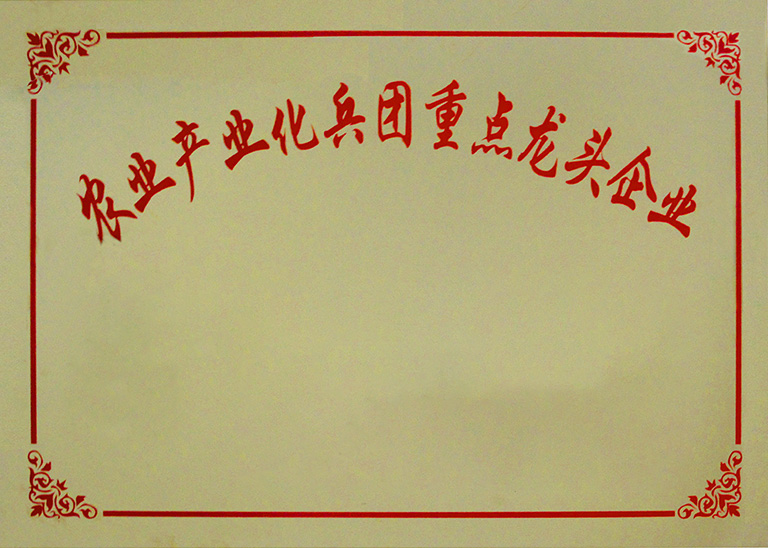 农业产业化兵团重点龙头企业